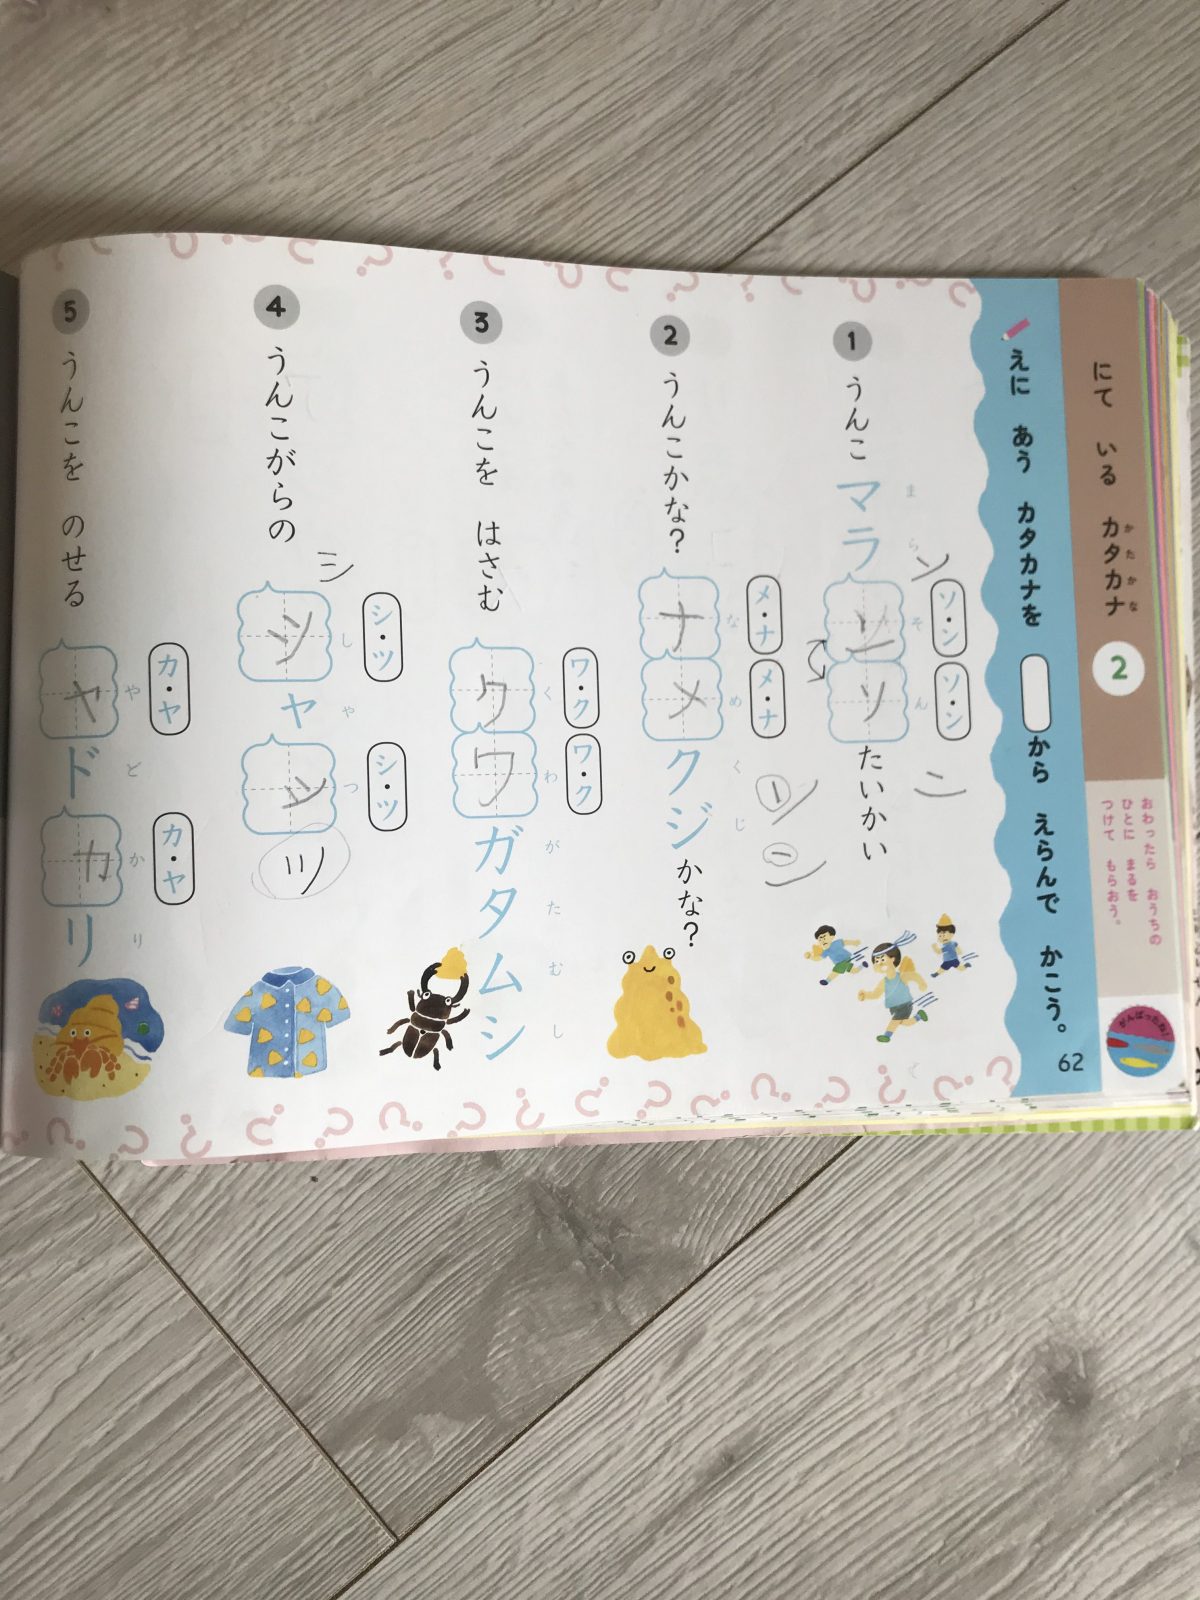 にて いる カタカナ 2
かたかな
おわったら おうちの
ひとに まるを
つけて もらおう。
がんばったね!
えに あう カタカナを から えらんで かこう。
62
1 うんこ マラソンたいかい
まらそん
ソ・ン
ソ・ン
2 うんこかな? ナメクジかな?
なめくじ
メ・ナ
メ・ナ
3 うんこを はさむ クワガタムシ
くわがたむし
ワ・ク
ワ・ク
4 うんこがらの シャツ
しゃつ
シ・ツ
シ・ツ
シ
ツ
5 うんこを のせる ヤドカリ
やどかり
カ・ヤ
カ・ヤ